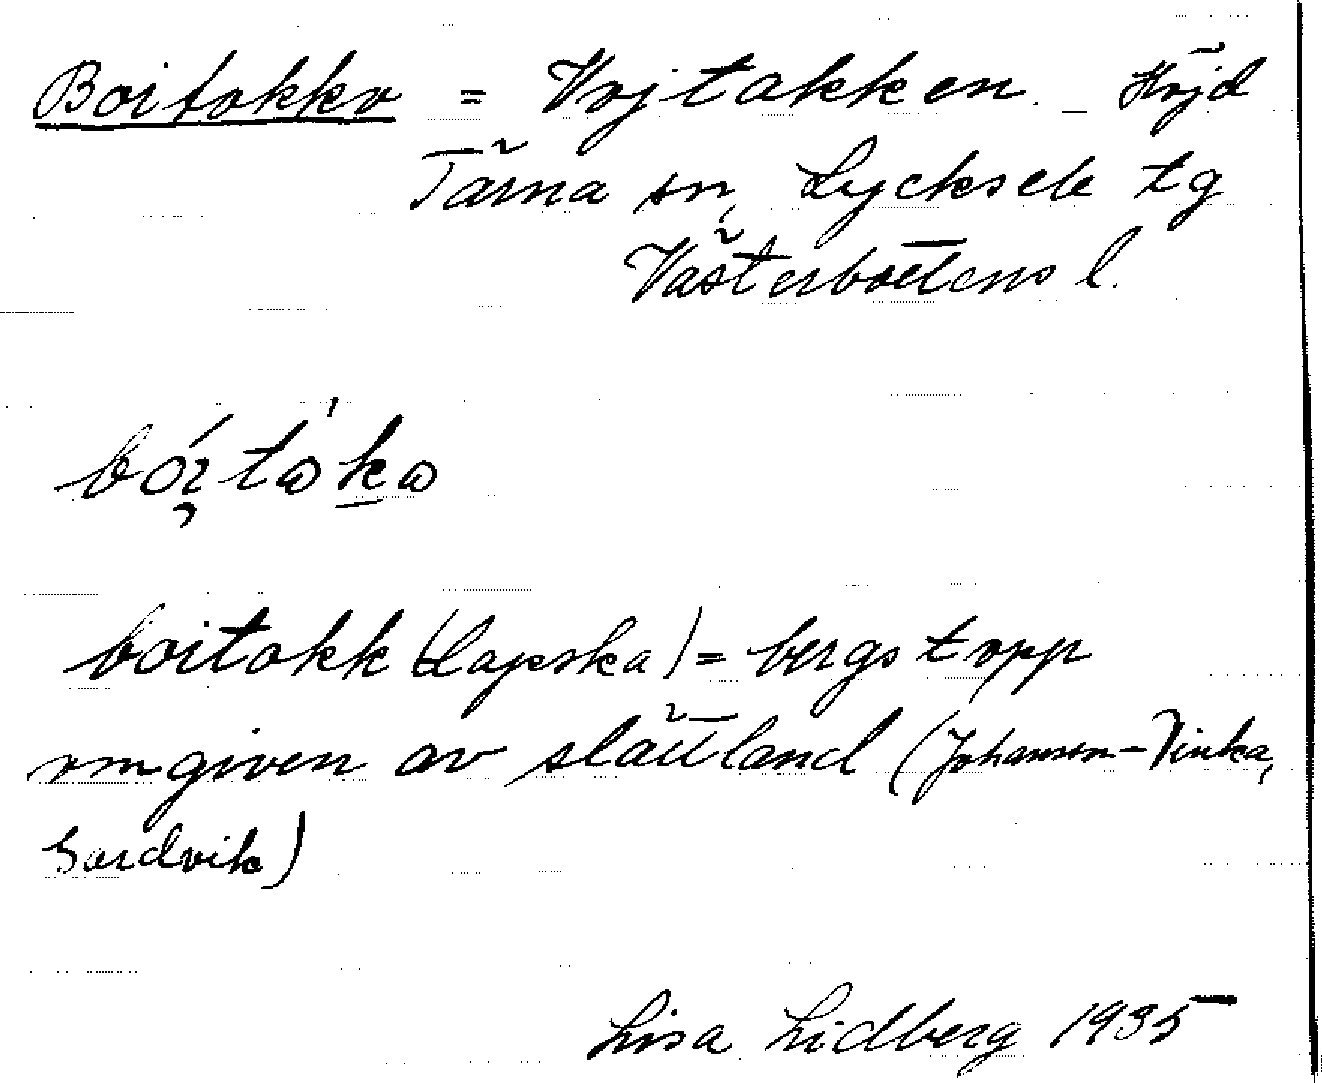 Boitokko = Vojtakken. – Höjd
Tärna sn, Lycksele tg
Västerbottens l.
boitokk (Lapska) = bergstopp
omgiven av slättland (Johansson-Vinka,
Sandvik)
Lisa Lidberg 1935